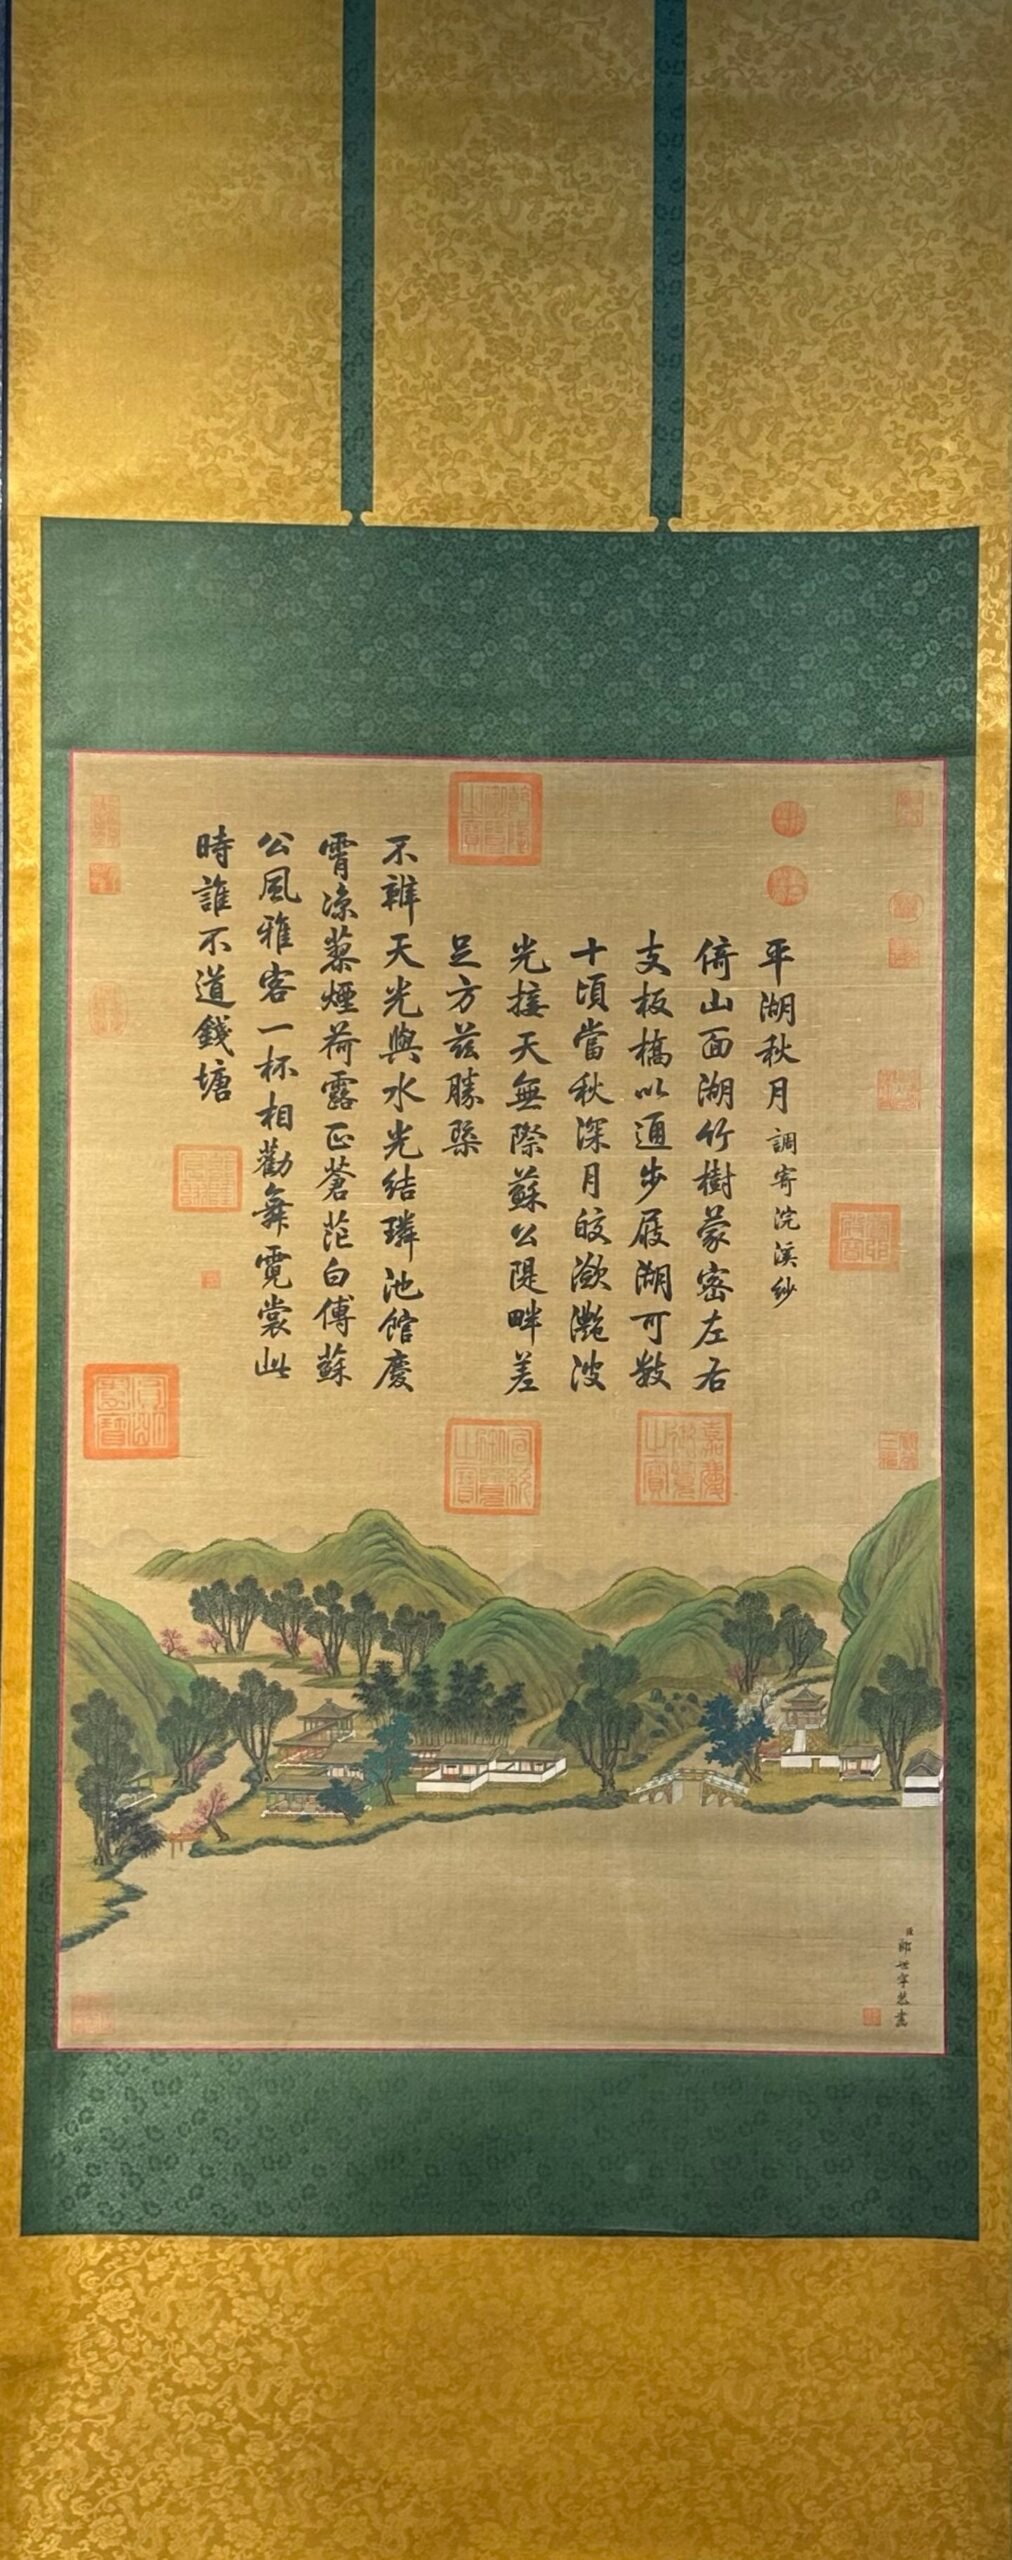 平湖秋月 調寄浣溪紗
倚山面湖竹樹蒙密左右
支板橋以通步屐湖可數
十頃當秋深月皎瀲灔波
光接天無際蘇公隄畔差
足方茲勝槩
不辨天光與水光結璘池館慶
霄涼蓼煙荷露正蒼茫白傅蘇
公風雅客一杯相勸舞霓裳此
時誰不道錢塘
臣郎世寧恭畫
乾隆御覽之寶
嘉慶御覽之寶
宣統御覽之寶